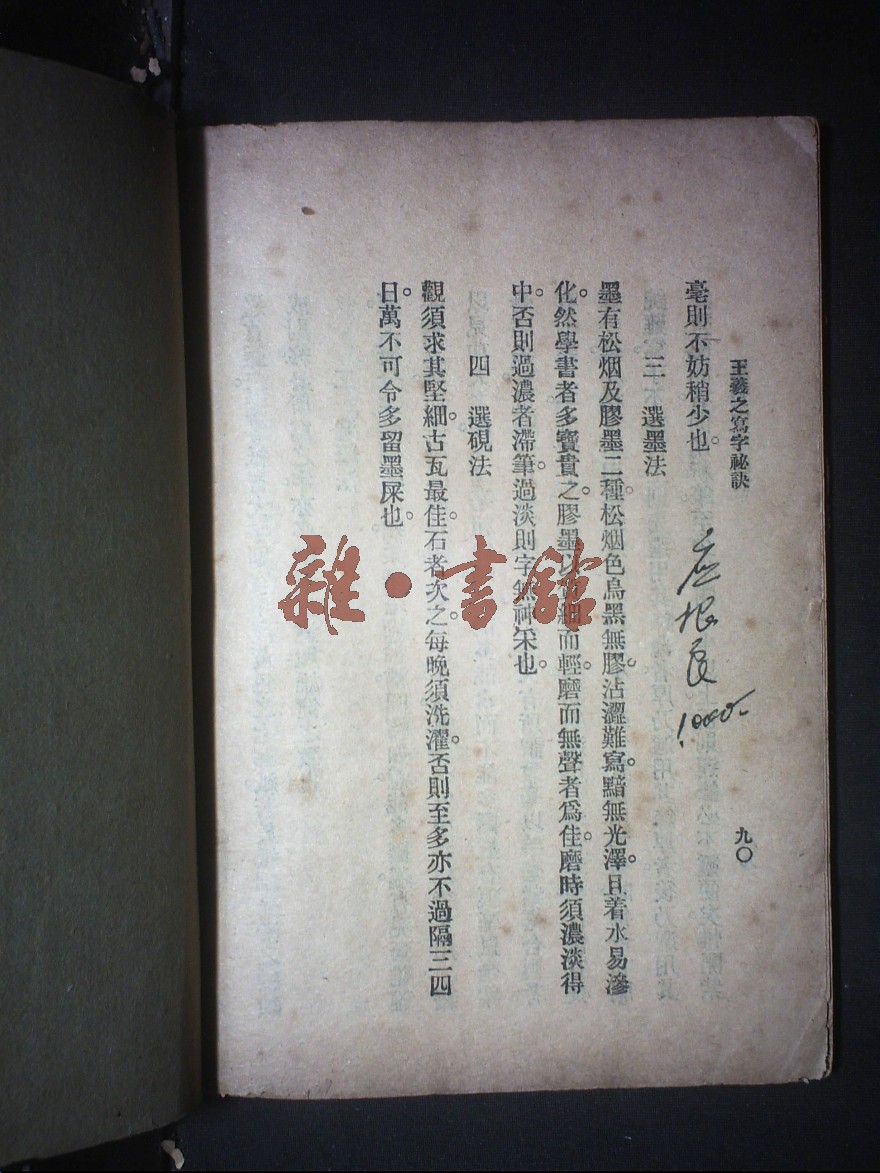 王羲之寫字祕訣
九〇
毫則不妨稍少也。
三 選墨法
墨有松烟及膠墨二種。松烟色烏黑無膠。沾澀難寫。黯無光澤。且着水易滲
化。然學書者多寶貴之。膠墨以質細而輕。磨而無聲者爲佳。磨時須濃淡得
中。否則過濃者滯筆。過淡則字無神采也。
四 選硯法
觀須求其堅細。古瓦最佳。石者次之。每晚須洗濯。否則至多亦不過隔三四
日。萬不可令多留墨屎也。
雜·書館